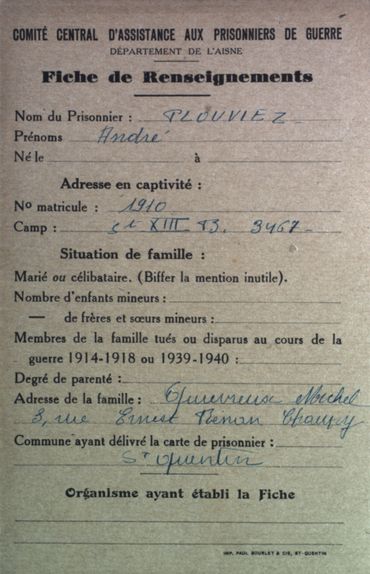 COMITÉ CENTRAL D'ASSISTANCE AUX PRISONNIERS DE GUERRE
DÉPARTEMENT DE L'AISNE
Fiche de Renseignements
Nom du Prisonnier : PLOUVIEZ
Prénoms André
Né le à
Adresse en captivité :
No matricule : 1910
Camp : St XIII B. 3467
Situation de famille :
Marié ou célibataire. (Biffer la mention inutile).
Nombre d'enfants mineurs :
— de frères et sœurs mineurs :
Membres de la famille tués ou disparus au cours de la
guerre 1914-1918 ou 1939-1940 :
Degré de parenté :
Adresse de la famille : Michel
3, rue Ernest Renan Chauny
Commune ayant délivré la carte de prisonnier :
St Quentin
Organisme ayant établi la Fiche
IMP. PAUL BOURLET & CIE, ST-QUENTIN